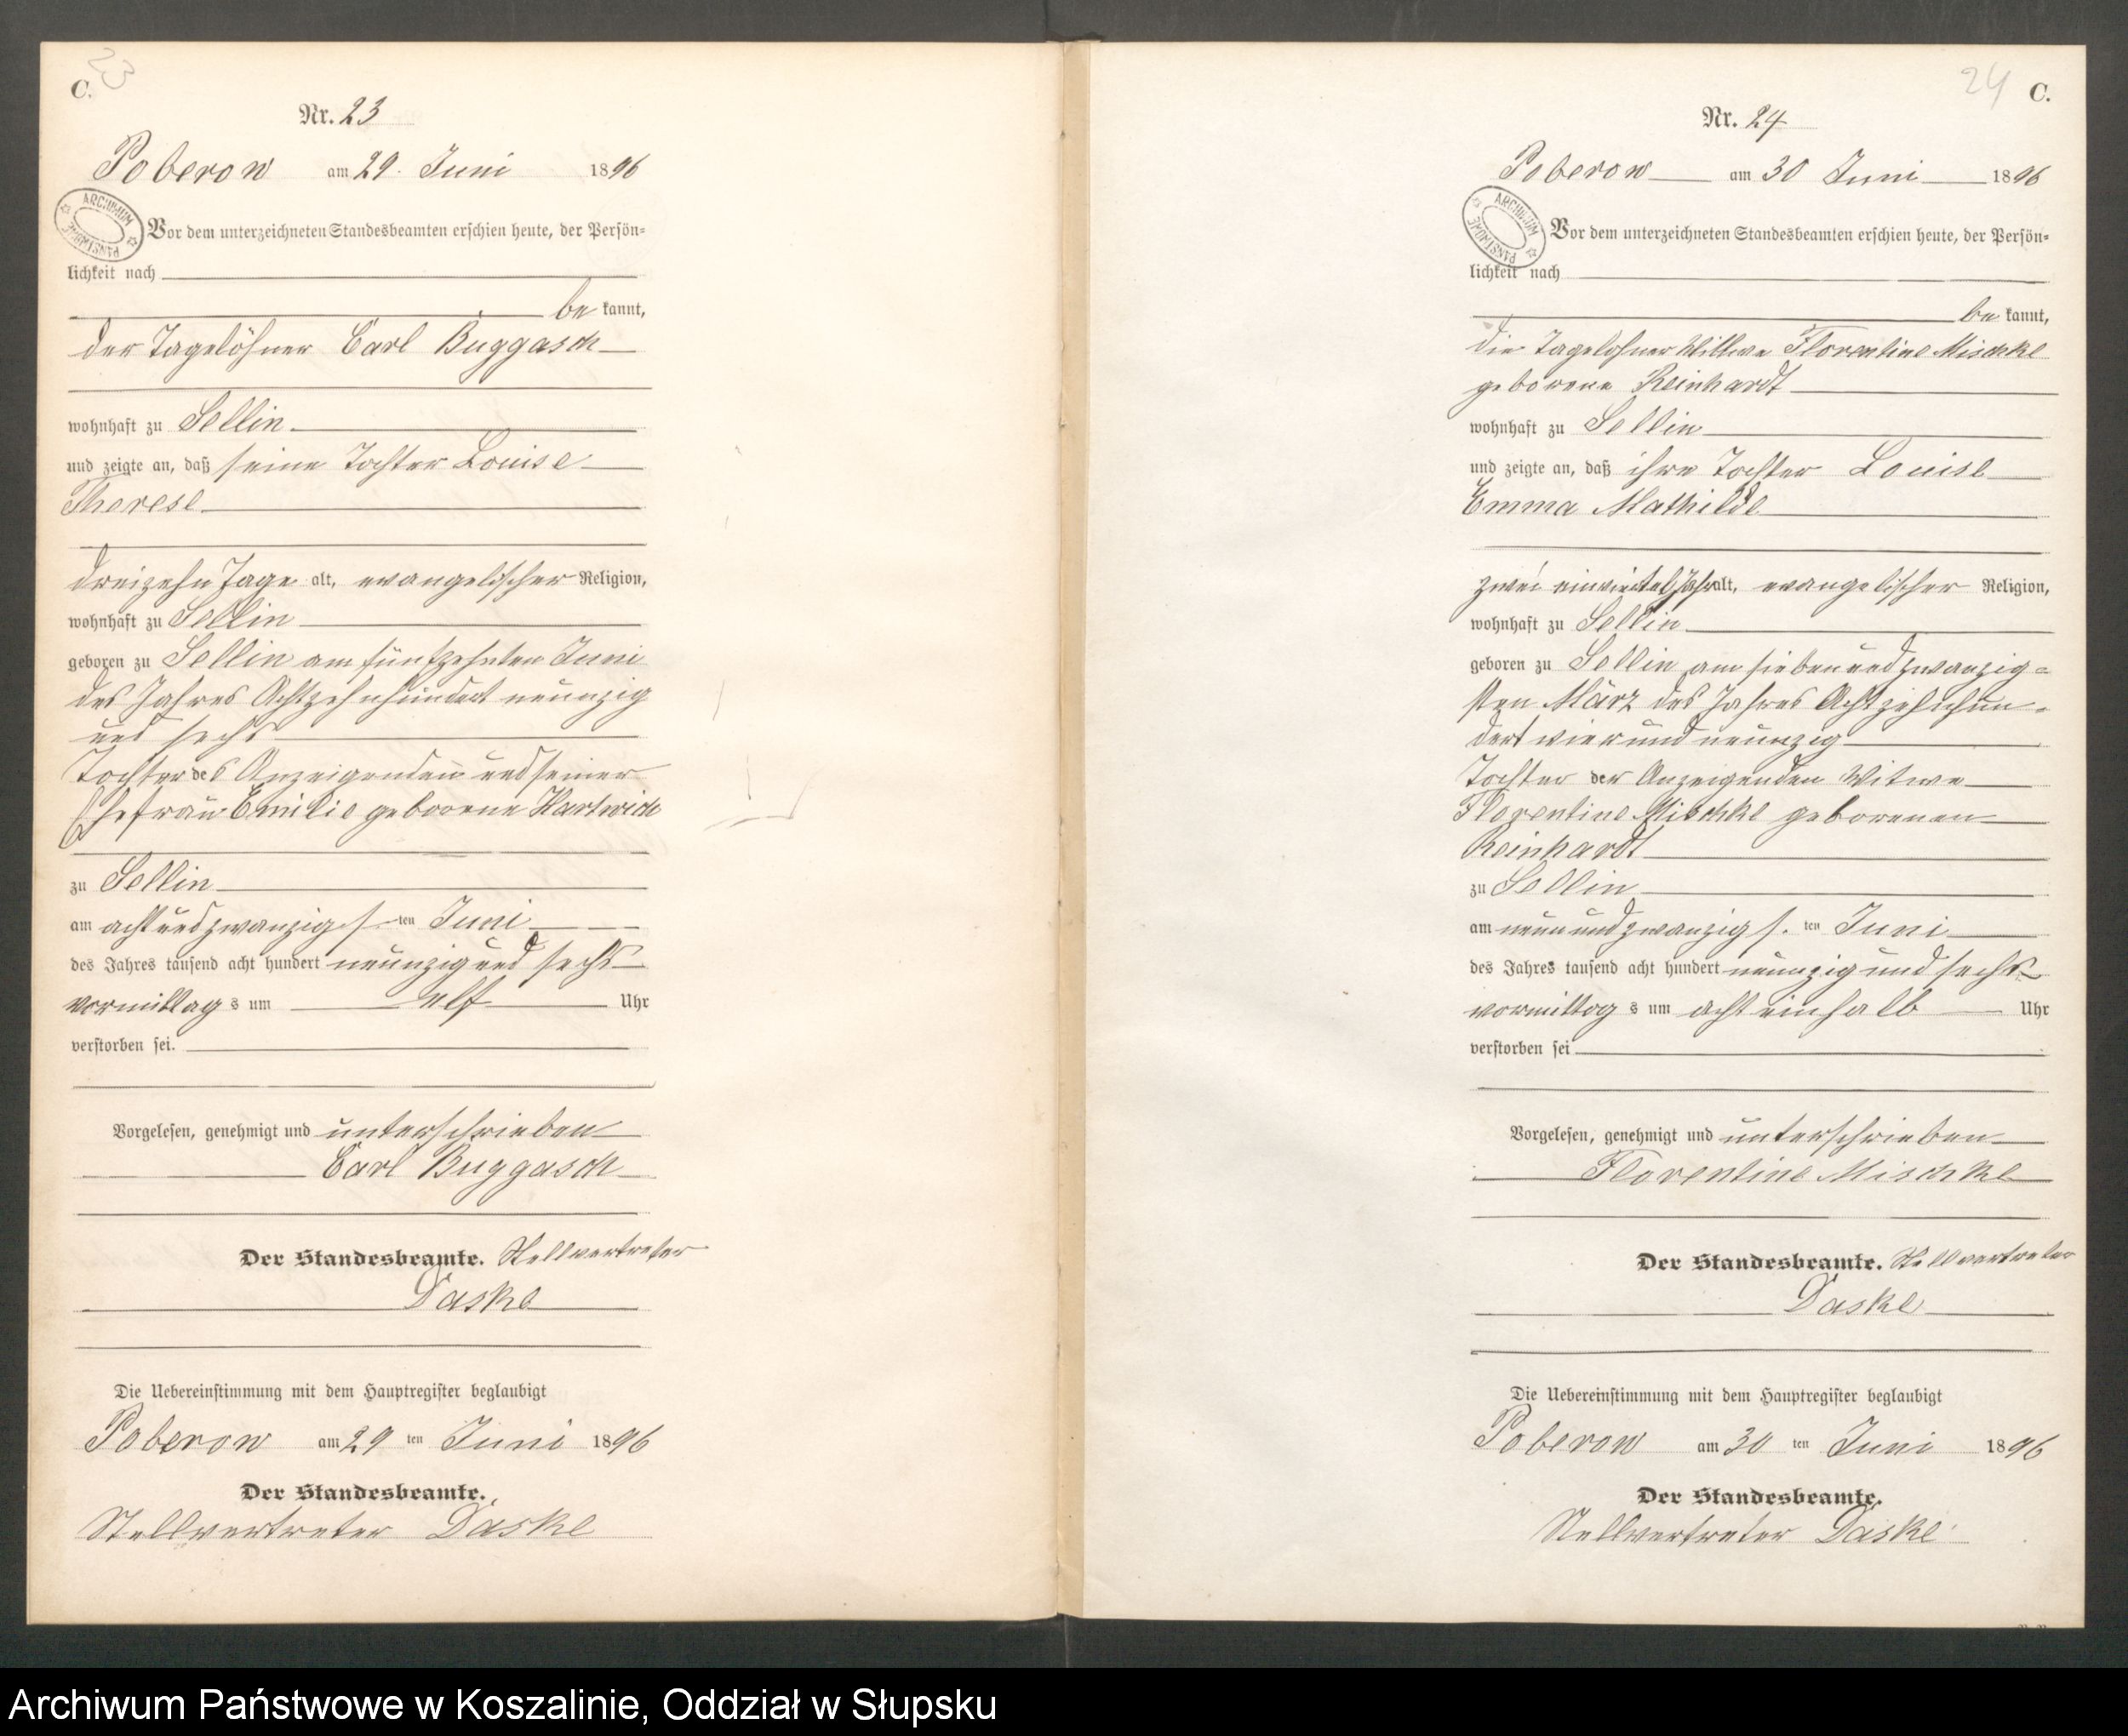 23
C.
Nr. 23
Poberow am 29. Juni 1896
ARCHIWUM PAŃSTWOWE
Vor dem unterzeichneten Standesbeamten erschien heute, der Persön-
lichkeit nach
be kannt,
der Tagelöhner Carl Buggasch
wohnhaft zu Sellin
und zeigte an, daß seine Tochter Louise
Therese
dreizehn Tage alt, evangelischer Religion,
wohnhaft zu Sellin
geboren zu Sellin am fünfzehnten Juni
des Jahres Achtzehnhundert neunzig
und sechs
Tochter des Anzeigenden und seiner
Ehefrau Emilie geborene Hartwich
zu Sellin
am achtundzwanzigs.ten Juni
des Jahres tausend acht hundert neunzig und sechs
vormittags um elf Uhr
verstorben sei.
Vorgelesen, genehmigt und unterschrieben
Carl Buggasch
Der Standesbeamte. Stellvertreter
Daske
Die Uebereinstimmung mit dem Hauptregister beglaubigt
Poberow am 29 ten Juni 1896
Der Standesbeamte.
Stellvertreter Daske
24
C.
Nr. 24
Poberow am 30 Juni 1896
ARCHIWUM PAŃSTWOWE
Vor dem unterzeichneten Standesbeamten erschien heute, der Persön-
lichkeit nach
be kannt,
die Tagelohner Wittwe Florentine Mischke
geborene Reinhardt
wohnhaft zu Sellin
und zeigte an, daß ihre Tochter Louise
Emma Mathilde
zwei einviertel Jahr alt, evangelischer Religion,
wohnhaft zu Sellin
geboren zu Sellin am siebenundzwanzig-
sten März des Jahres Achtzehnhun-
dert vier und neunzig
Tochter der Anzeigenden Witwe
Florentine Mischke geborenen
Reinhardt
zu Sellin
am neunundzwanzigs.ten Juni
des Jahres tausend acht hundert neunzig und sechs
vormittags um acht einhalb Uhr
verstorben sei
Vorgelesen, genehmigt und unterschrieben
Florentine Mischke
Der Standesbeamte. Stellvertreter
Daske
Die Uebereinstimmung mit dem Hauptregister beglaubigt
Poberow am 30 ten Juni 1896
Der Standesbeamte.
Stellvertreter Daske
Archiwum Państwowe w Koszalinie, Oddział w Słupsku